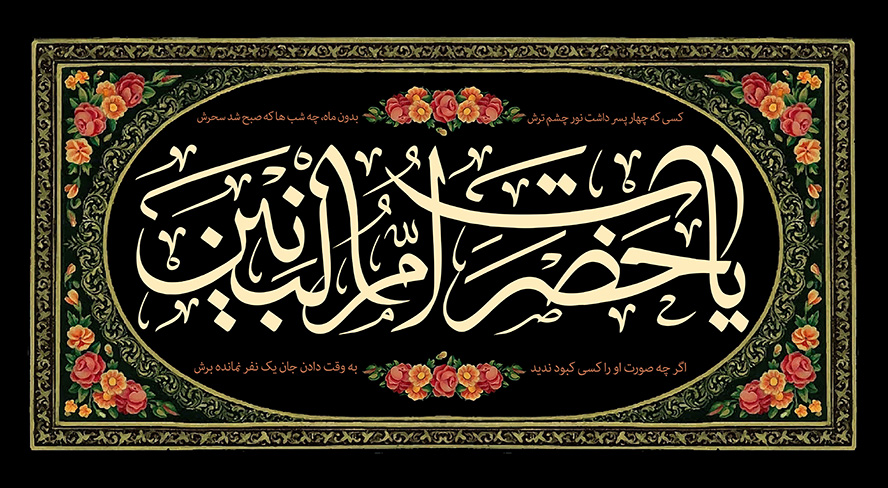 کسی که چهار پسر داشت نور چشم ترش
بدون ماه، چه شب ها که صبح شد سحرش
یا حضرت ام البنین
اگر چه صورت او را کسی کبود ندید
به وقت دادن جان یک نفر نمانده برش